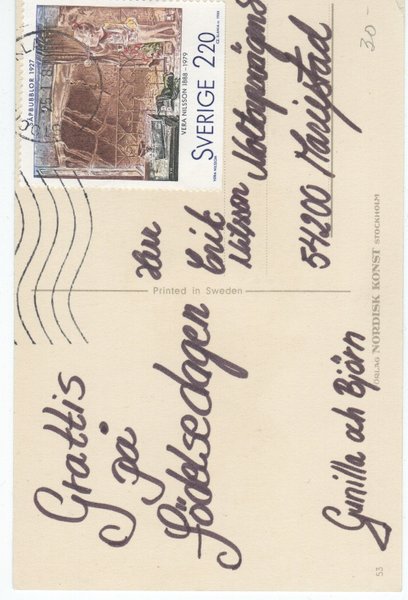 Grattis
på
födelsedagen
Gunilla och Björn
Herr
Erik
Nilsson
54200 Mariestad
Printed in Sweden
FÖRLAG NORDISK KONST STOCKHOLM
53
30-
SÅPBUBBLOR 1927
VERA NILSSON 1888-1979
SVERIGE 220